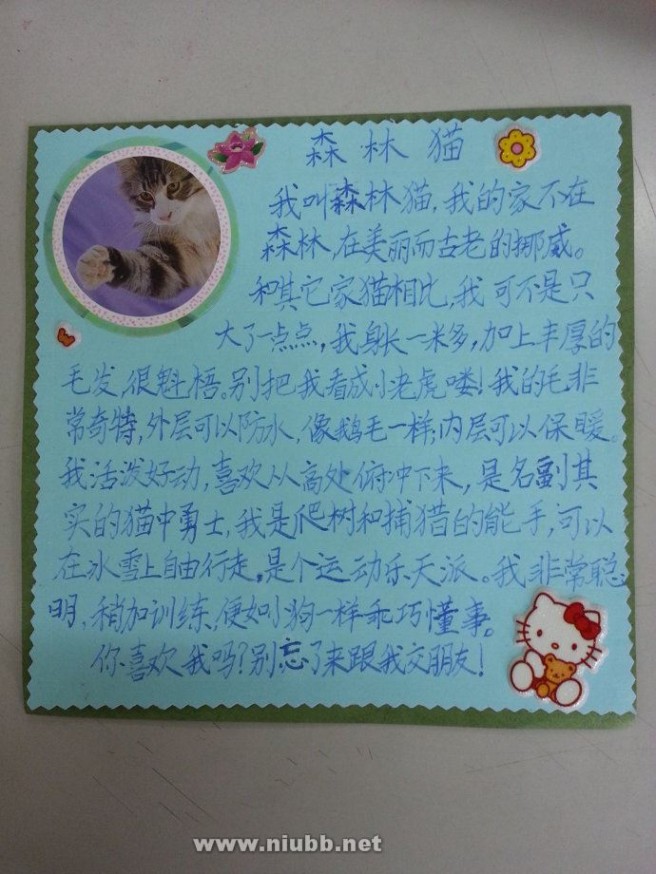 森林猫
我叫森林猫,我的家不在
森林,在美丽而古老的挪威。
和其它家猫相比,我可不是只
大了一点点,我身长一米多,加上丰厚的
毛发,很魁梧。别把我看成小老虎喽!我的毛非
常奇特,外层可以防水,像鹅毛一样,内层可以保暖。
我活泼好动,喜欢从高处俯冲下来,是名副其
实的猫中勇士,我是爬树和捕猎的能手,可以
在冰雪上自由行走,是个运动乐天派。我非常聪
明,稍加训练,便如小狗一样乖巧懂事。
你喜欢我吗?别忘了来跟我交朋友!
www.niubb.net